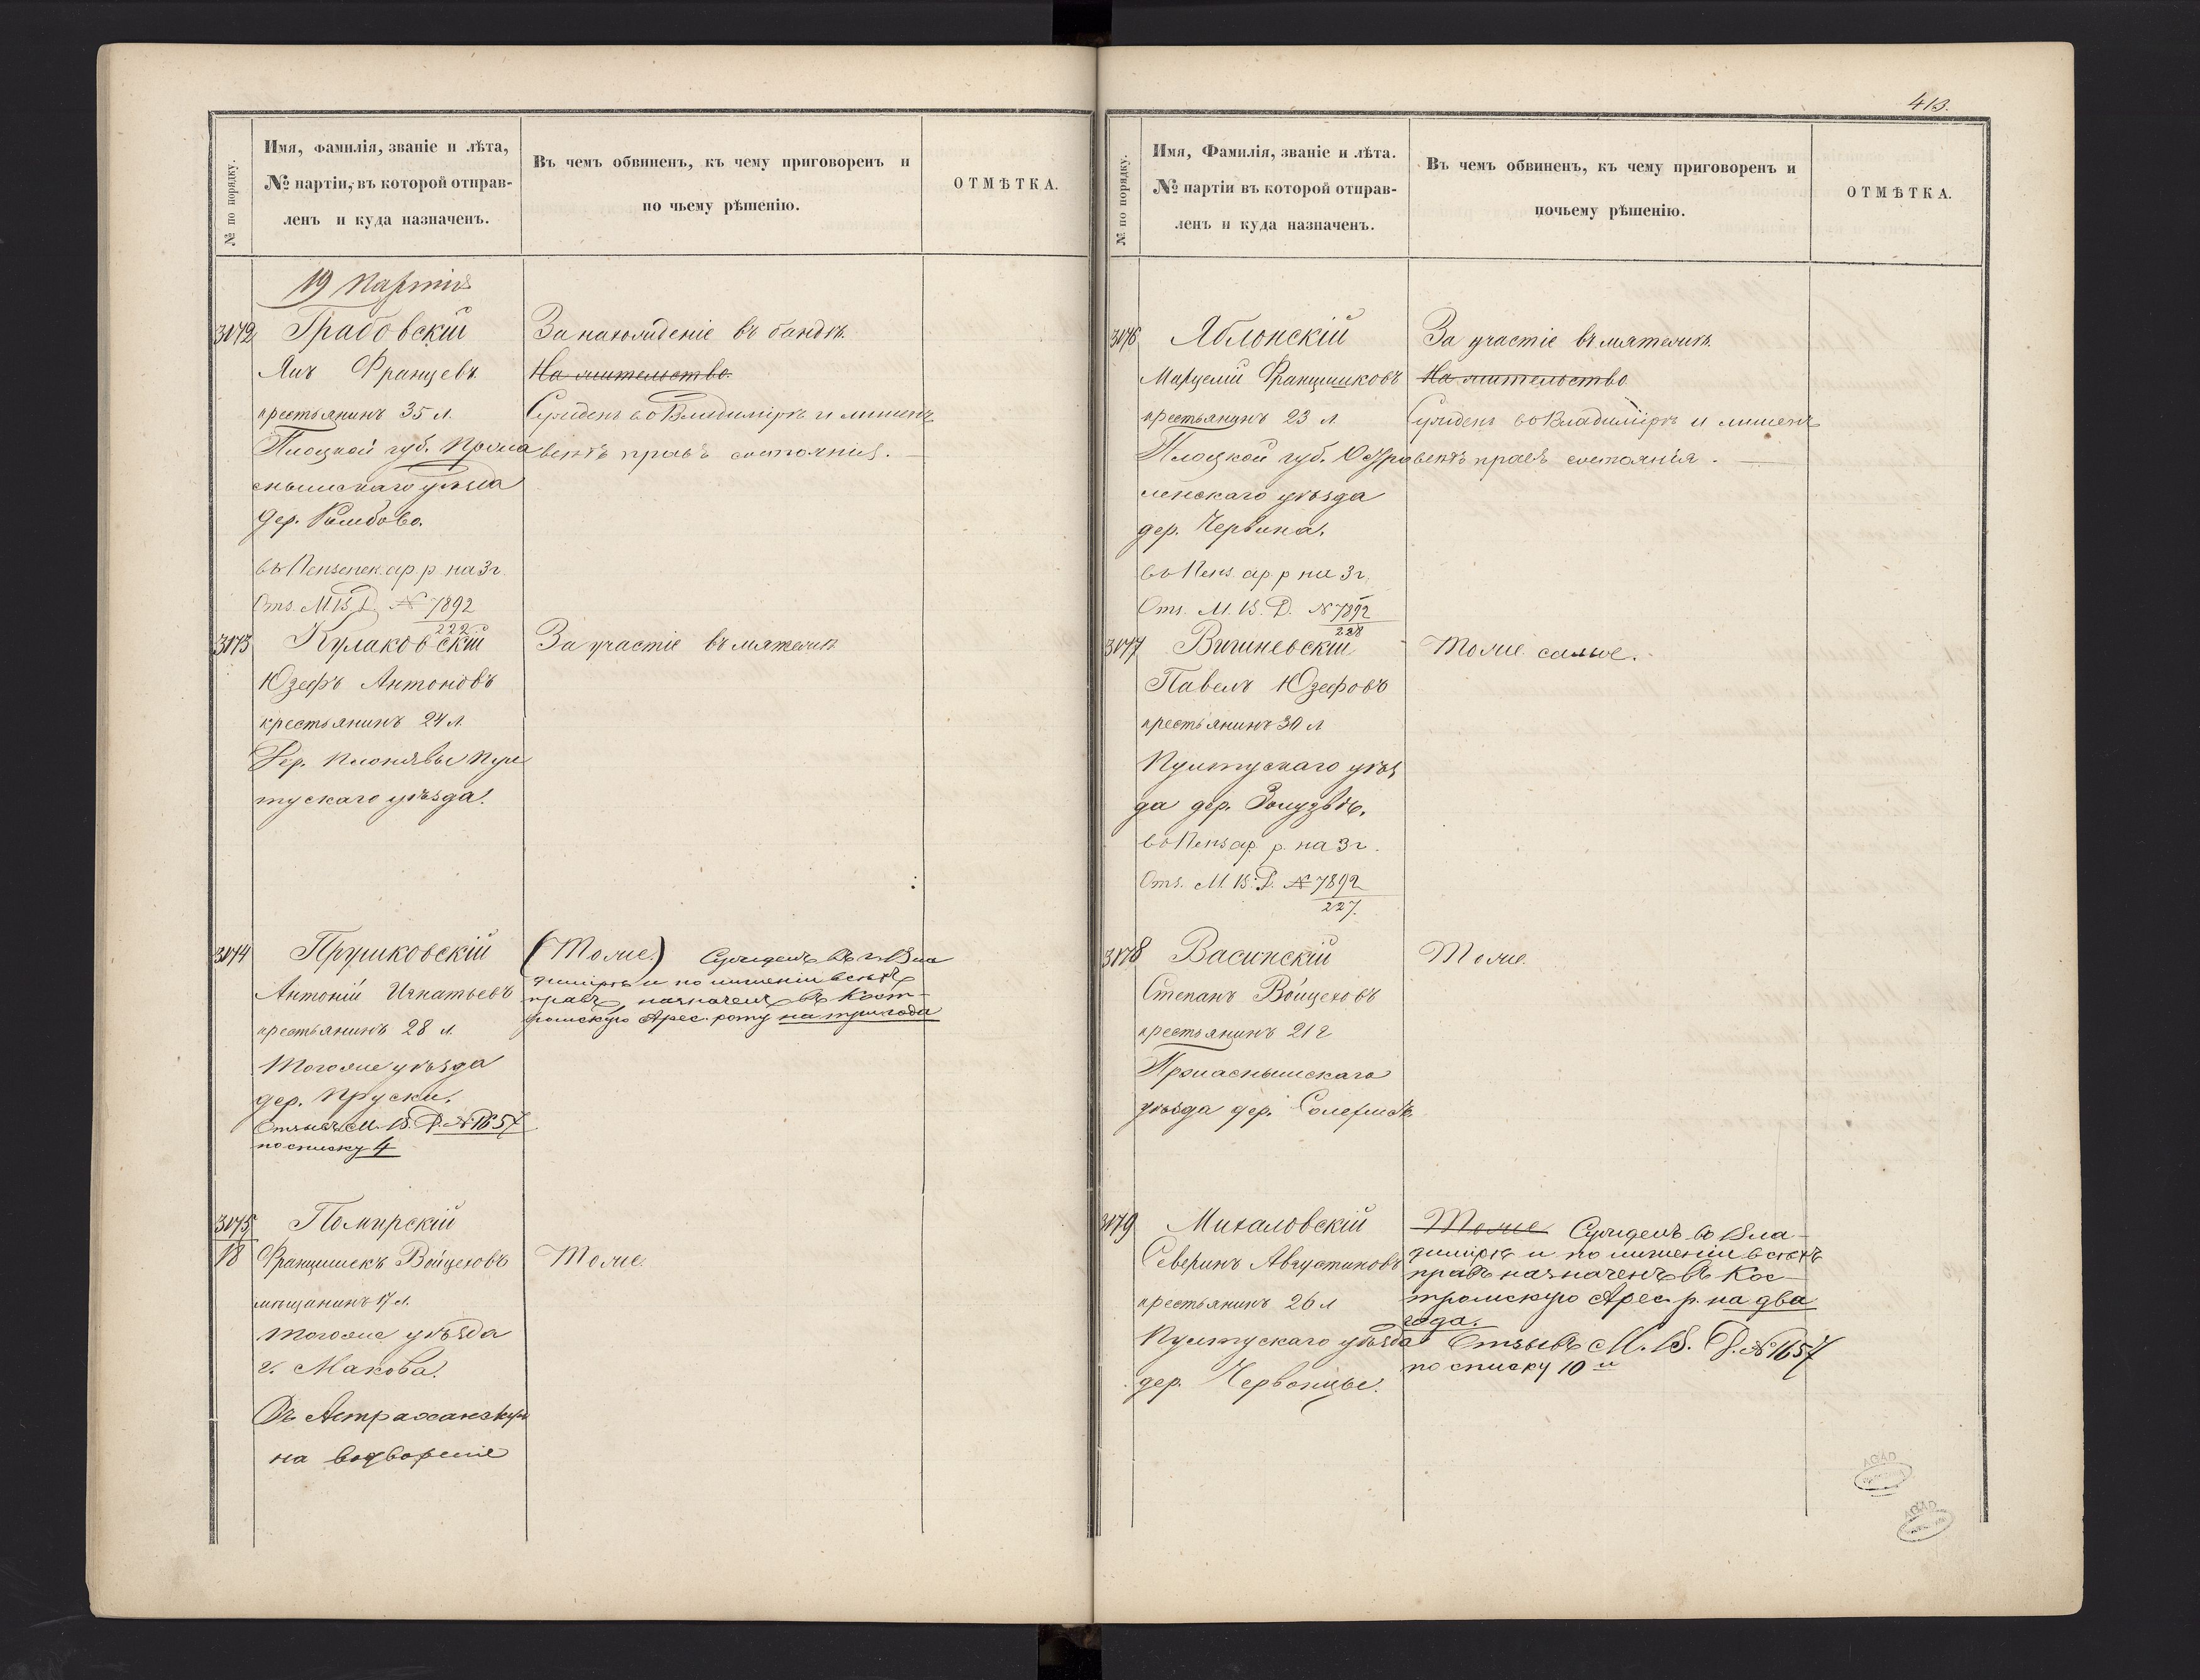 413.
№ по порядку.
Имя, фамилія, званіе и лѣта,
№ партіи, въ которой отправ-
ленъ и куда назначенъ.
Въ чемъ обвиненъ, къ чему приговоренъ и
по чьему рѣшенію.
ОТМѢТКА.
19 партія
3072
Грабовскій
Янъ Францевъ
крестьянинъ 35 л.
Плоцкой губ. Праса
снышскаго уѣзда
дер.
въ Пензенск. ар. р. на 3 г.
Отз. М. В. Д. № 7892
222
За нахожденіе въ бандѣ.
На жительство.
Сужденъ во Владимірѣ и лишенъ
всѣхъ правъ состоянія.
3073
Кулаковскій
Юзефъ Антоновъ
крестьянинъ 24 л.
Дер. Пул
тускаго уѣзда.
За участіе въ мятежѣ
3074
Прушковскій
Антоній Игнатьевъ
крестьянинъ 28 л.
Тогоже уѣзда
дер. Пруски.
Отзывъ М. В. Д. № 1657
по списку 4
(Тоже) Сужденъ въ г. Вла
димірѣ и по лишеніи всѣхъ
правъ назначенъ въ Кост-
ромскую Арес. роту на три года
3075
18
Помирскій
Францишекъ Войцеховъ
мѣщанинъ 17 л.
тогоже уѣзда
г. Макова.
Въ Астраханскую
на водвореніе
Тоже.
№ по порядку.
Имя, Фамилія, званіе и лѣта.
№ партіи въ которой отправ-
ленъ и куда назначенъ.
Въ чемъ обвиненъ, къ чему приговоренъ и
почьему рѣшенію.
ОТМѢТКА.
3076
Яблонскій
Марцелій Францишковъ
крестьянинъ 23 л
Плоцкой губ. Остро
ленскаго уѣзда
дер. Червина.
въ Пенз. ар. р на 3 г.
Отз. М. В. Д. № 7892
228
За участіе въ мятежѣ.
На жительство
Сужденъ во Владимірѣ и лишенъ
всѣхъ правъ состоянія.
3077
Вишневскій
Павелъ Юзефовъ
крестьянинъ 30 л
Пултускаго уѣз
да дер.
въ Пенз ар р. на 3 г.
Отз. М. В. Д. № 7892
227.
Тоже самое.
3078
Васинскій
Степанъ Войцеховъ
крестьянинъ 21 г
Праснышскаго
уѣзда дер.
Тоже.
3079
Михаловскій
Северинъ Августиновъ
крестьянинъ 26 л
Пултускаго уѣзда
дер. Червонцы.
Тоже Сужденъ во Вла-
димірѣ и по лишеніи всѣхъ
правъ назначенъ въ Кос-
тромскую Арес. р. на два
года.
Отзывъ М. В. Д. № 1657
по списку 10
AGAD
AGAD